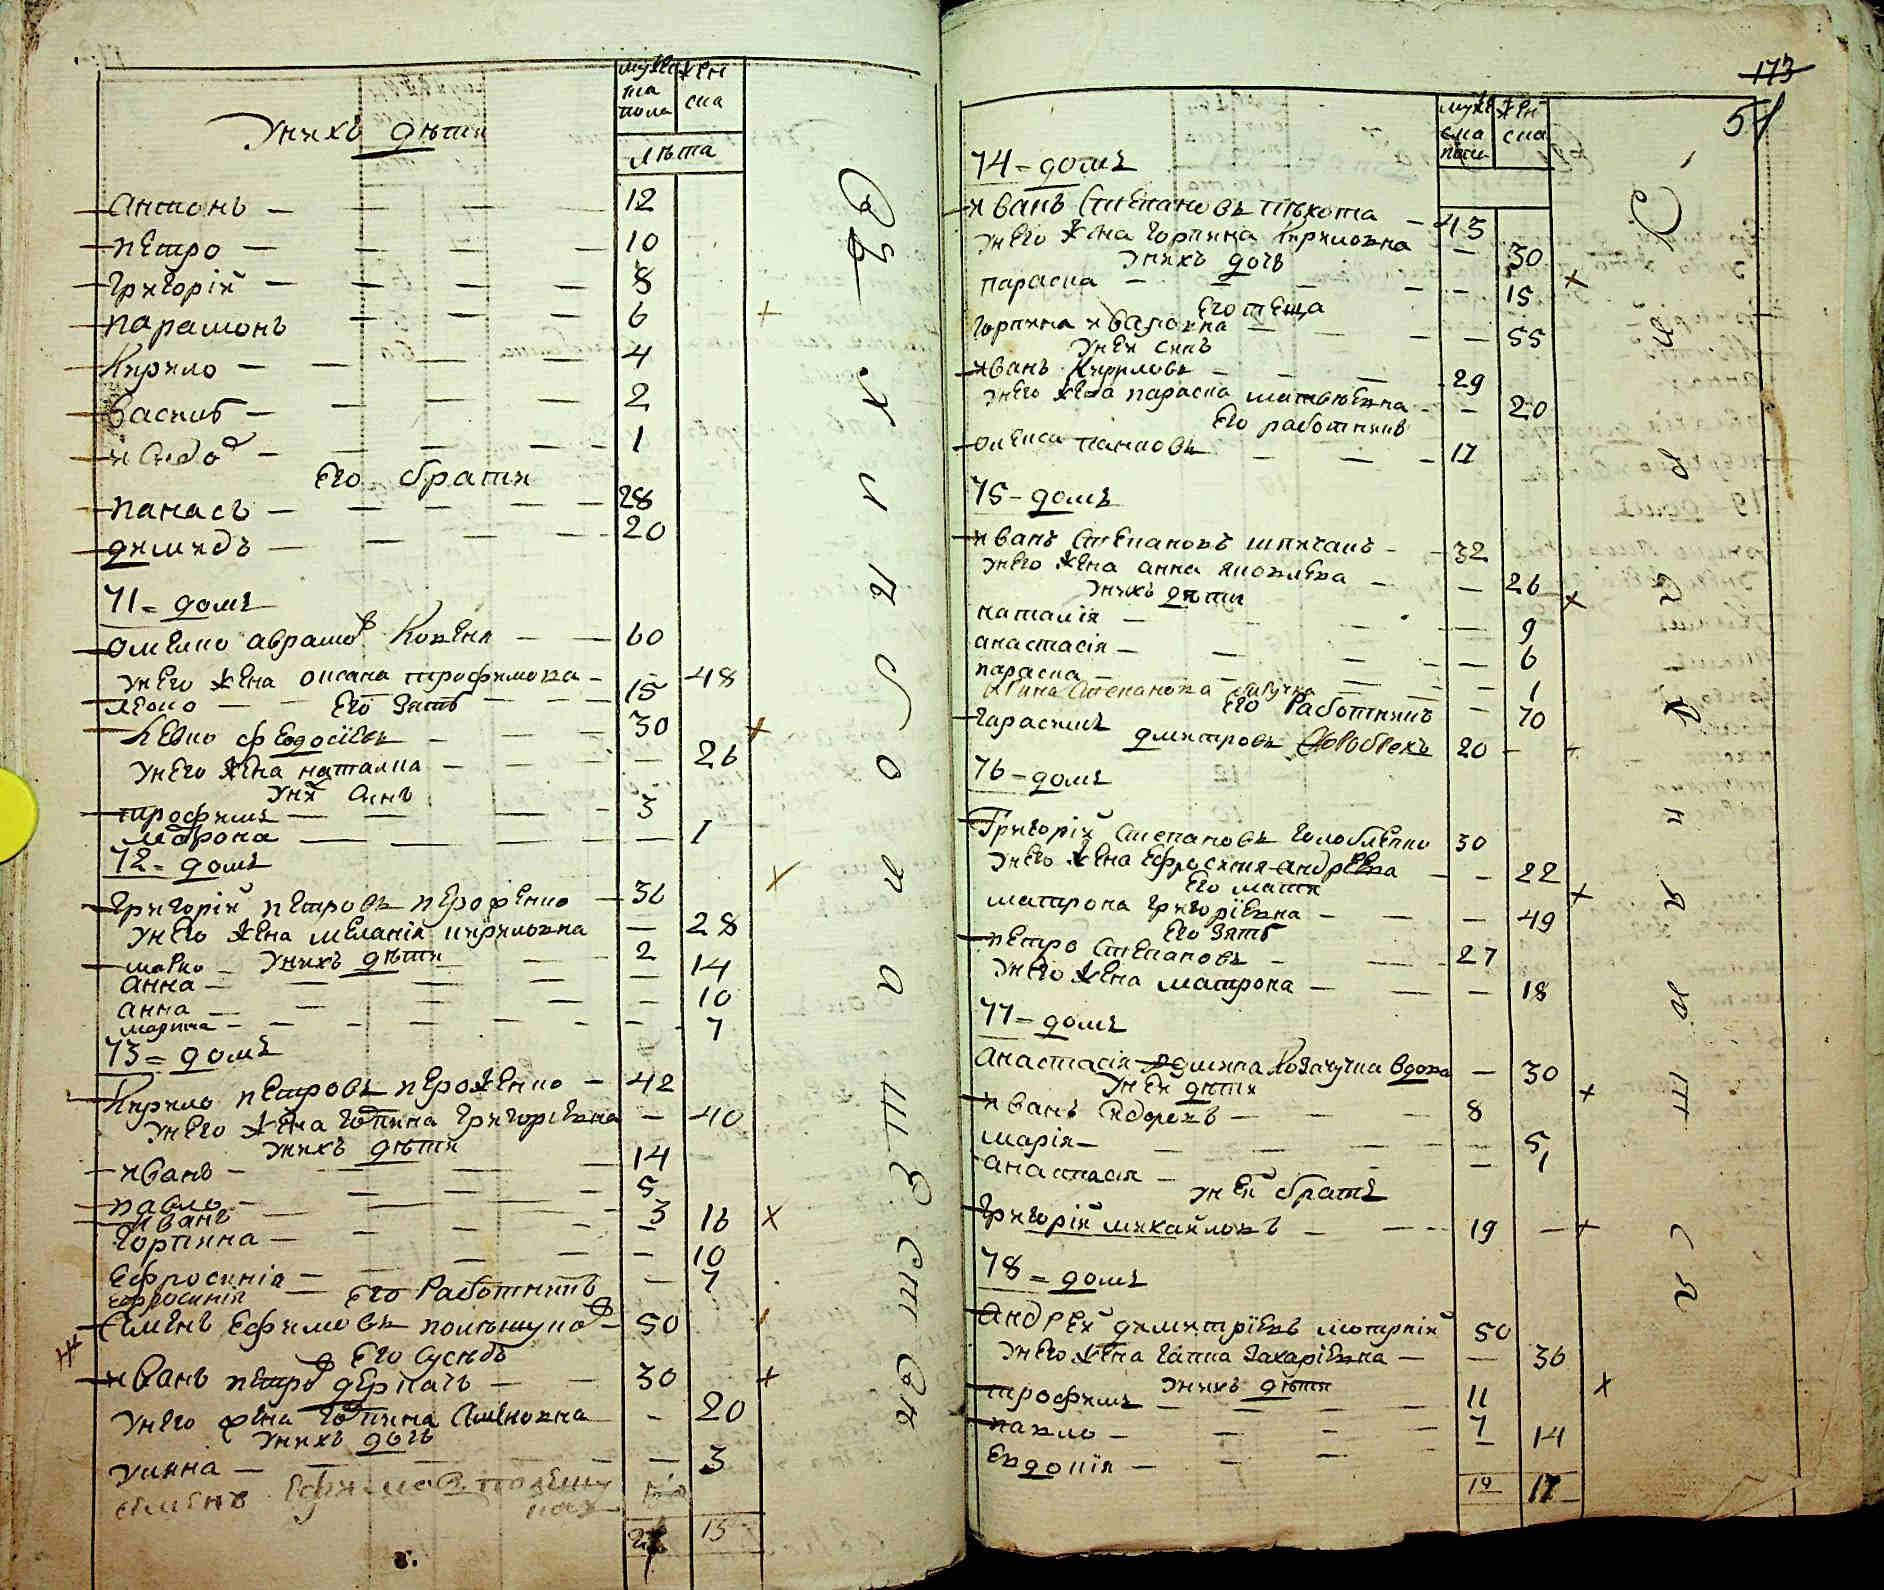 мужеска пола женска
лѣта
У нихъ дѣти
Антонъ 12
Петро 10
Григорій 8
Парамонъ 6
Кирило 4
Василь 2
Исидоръ 1
Его брати
Панасъ 28
Димидъ 20
71 = домъ
Омелко Аврамовъ 60
У него жена Оксана Трофимовна 48
Леско 15
Его зять
Левко Феодосіевъ 30
У него жена Наталка 26
У них синъ
Трофимъ 3
Матрона 1
72 = домъ
Григорій Петровъ 36
У него жена Меланія Кириловна 28
У нихъ дѣти
Марко 2
Анна 14
Анна 10
Марина 7
73 = домъ
Кирило Петровъ 42
У него жена Горпина Григоріевна 40
У нихъ дѣти
Иванъ 14
Павло 5
Иванъ 3
Горпина 16
Ефросинія 10
Ефросинія 7
Его работникъ
Семенъ Ефимовъ 50
Его сусѣдъ
Иванъ Петровъ Деркачь 30
У него жена Горпина Семеновна 20
У нихъ дочь
Улянна 3
Семенъ Ефимовъ
15
173
мужеска пола женска
74 = домъ
Иванъ Степановъ Пѣхота 43
У него жена Горпина Кириловна 30
У нихъ дочь
Параска 15
Его теща
Горпина Ивановна 55
У неи синъ
Иванъ Кириловъ 29
У него жена Параска Матвѣевна 20
Его работникъ
17
75 = домъ
Иванъ Степановъ 32
У него жена Анна Яковлевна 26
У нихъ дѣти
Наталія 9
Анастасія 6
Параска 1
Степановна 70
Его работникъ
Гараскимъ
Дмитровъ 20
76 = домъ
Григорій Степановъ 30
У него жена Ефросинія Андрѣевна 22
Его мати
Матрона Григоріевна 49
Его зять
Петро Степановъ 27
У него жена Матрона 18
77 = домъ
Анастасія вдова 30
У неи дѣти
Иванъ 8
Марія 5
Анастасія 1
У ней братъ
Григорій Михайловъ 19
78 = домъ
Андрей Димитріевъ 50
У него жена Гапка Захаріевна 36
У нихъ дѣти
Трофимъ 11
Павло 7
Евдокія 14
19 17